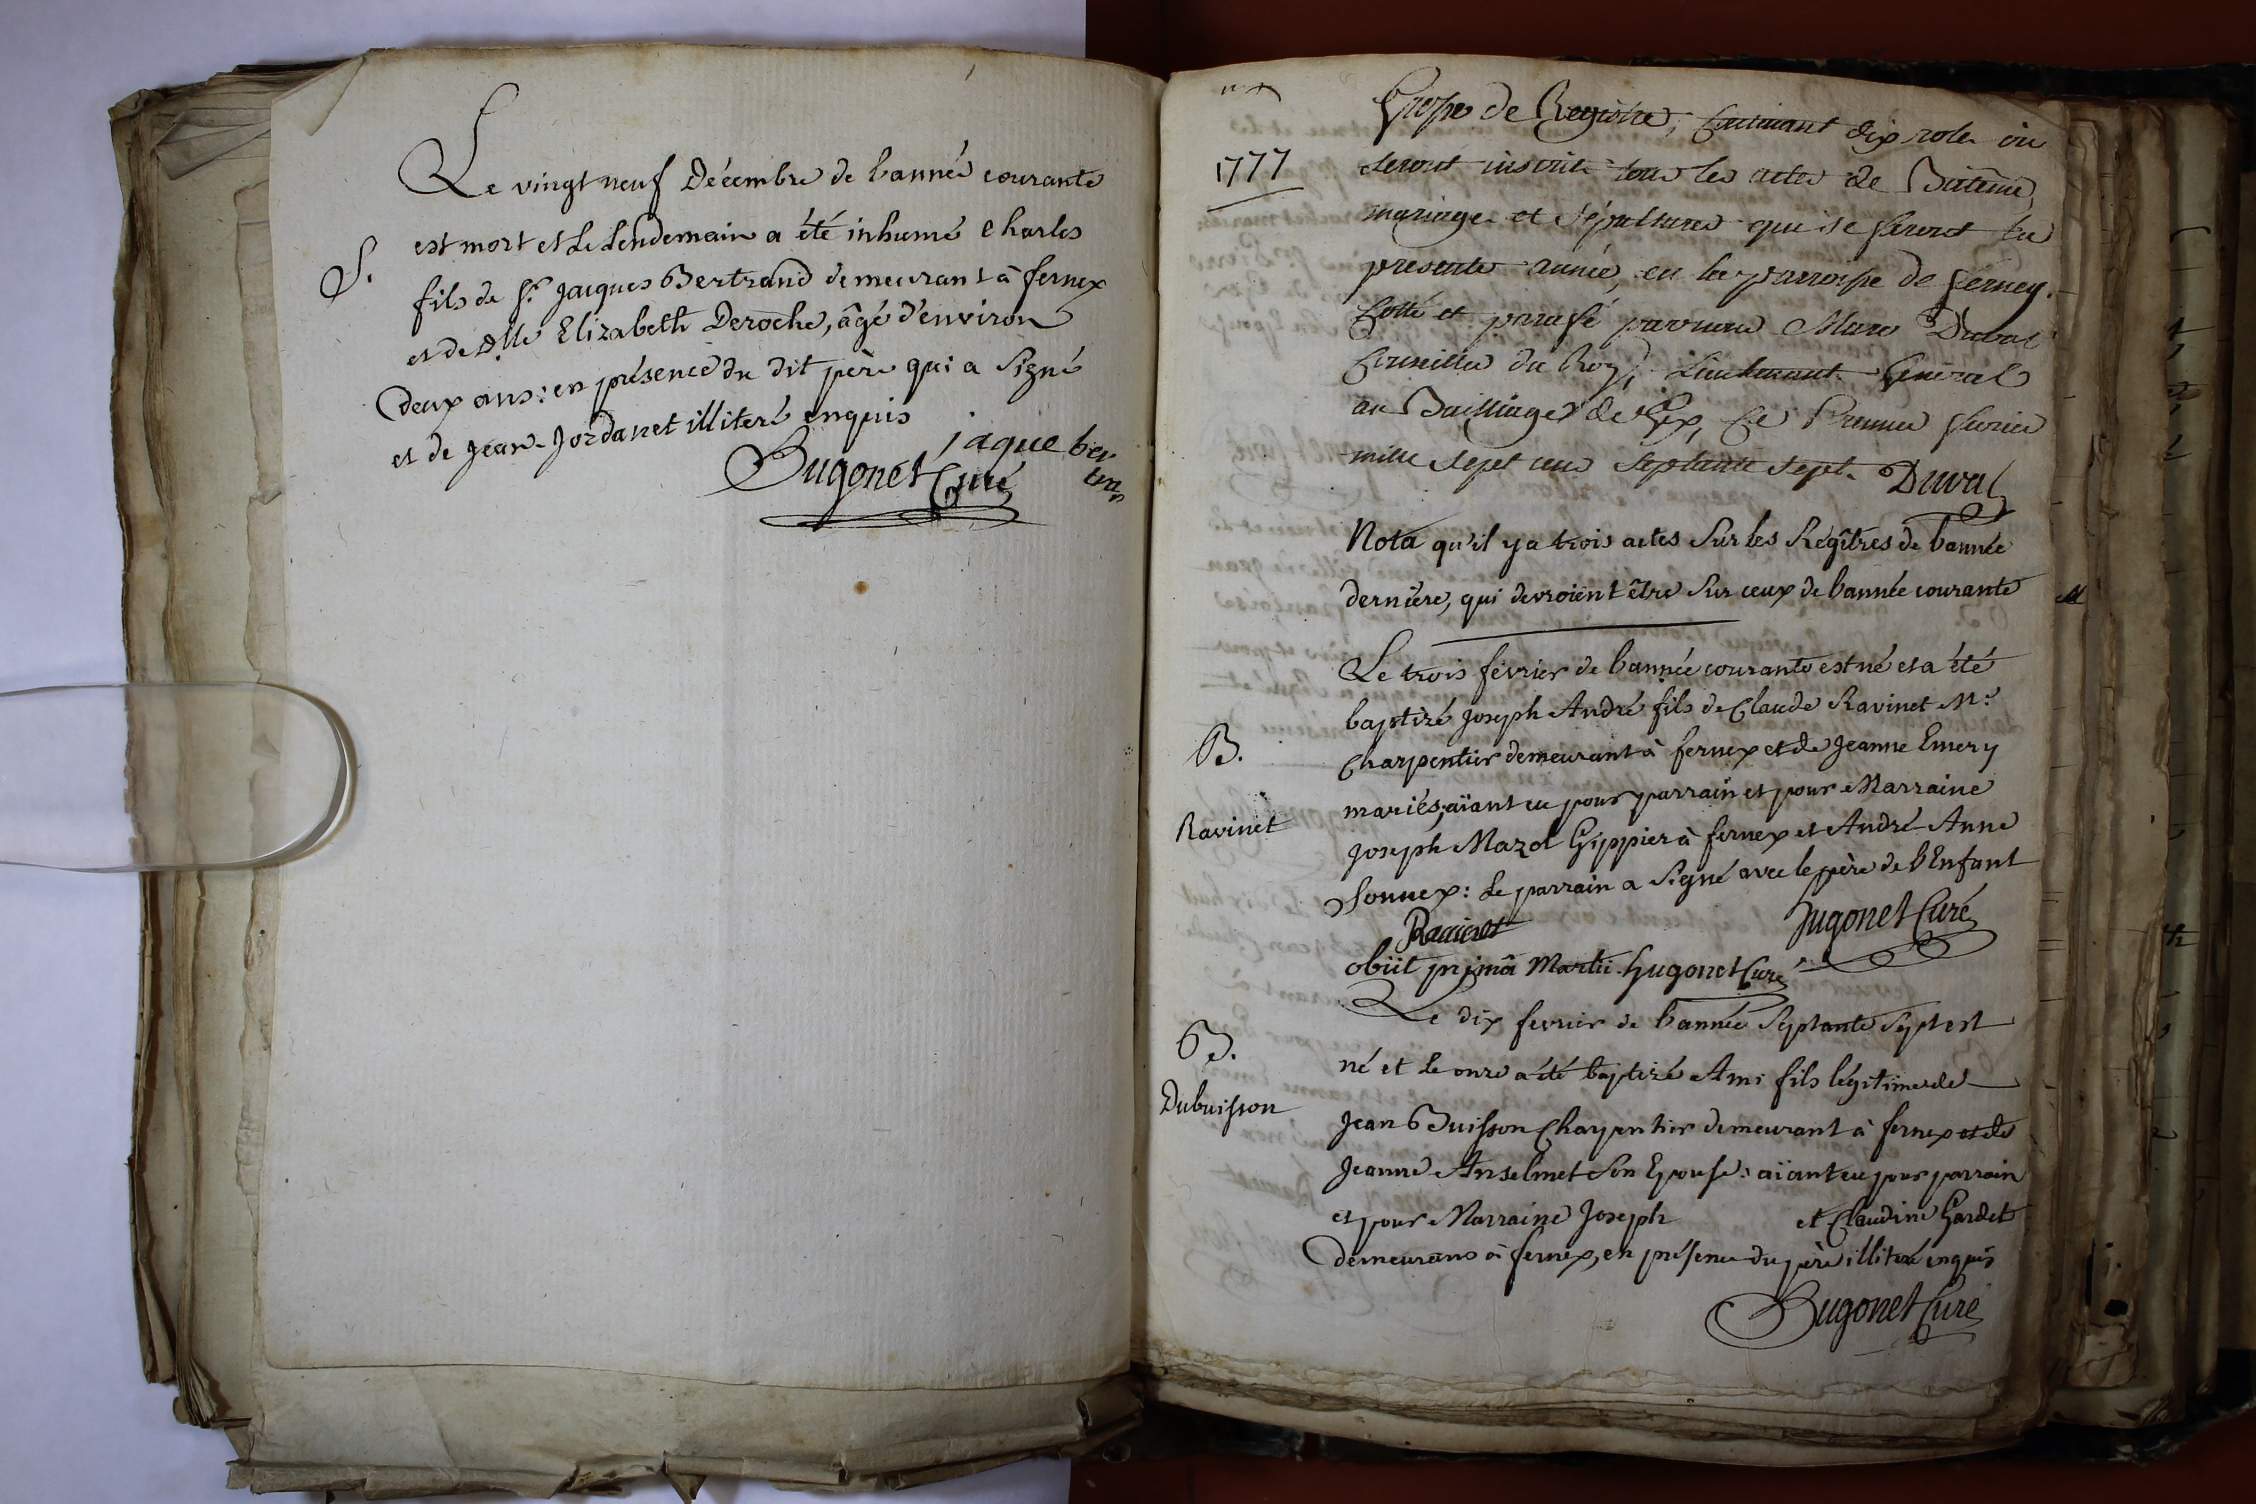 Le vingt neuf Décembre de l'année courante
S.
est mort et le lendemain a été inhumé Charles
fils de Sr. Jacques Bertrand demeurant à fernex
et de Dlle Elizabeth Deroche, âgé d'environ
deux ans: en présence du dit père qui a Signé
et de Jean Jordanet illiteré enquis
jaque ber
tran
Hugonet Curé
1777
Grosse de Registre, Contenant dix roles ou
seront inscrits tous les actes de Batême,
mariages et sépultures qui se feront la
presente année, en la parroisse de ferney.
Cotté et parafé par nous Marc Duval
Conseiller du Roy, Lieutenant Général
au Bailliage de Gex, Ce Premier fevrier
mille sept cens septante sept. Duval
Nota qu'il y a trois actes Sur les Regîtres de l'année
dernière, qui devroient être Sur ceux de l'année courante
Le trois février de l'année courante est né et a été
baptizé Joseph André fils de Claude Ravinet Me.
B.
Charpentier demeurant à fernex et de Jeanne Emery
mariés; aïant eu pour parrain et pour Marraine
Ravinet
Joseph Mazol Gippier à fernex et André-Anne
Sonnex: Le parrain a Signé avec le père de l'Enfant
Ravinet
Hugonet Curé
obiit primâ Martii. Hugonet Curé
Le dix fevrier de l'année Septante Sept est
B.
né et le onze a été baptizé Ami fils légitime de
Dubuisson
Jean Buisson Charpentier demeurant à fernex et de
Jeanne Anselmet Son Epouse: aïant eu pour parrain
et pour Marraine Joseph et Claudine Gardet
demeurans à fernex, en présence du père illiteré enquis
Hugonet Curé